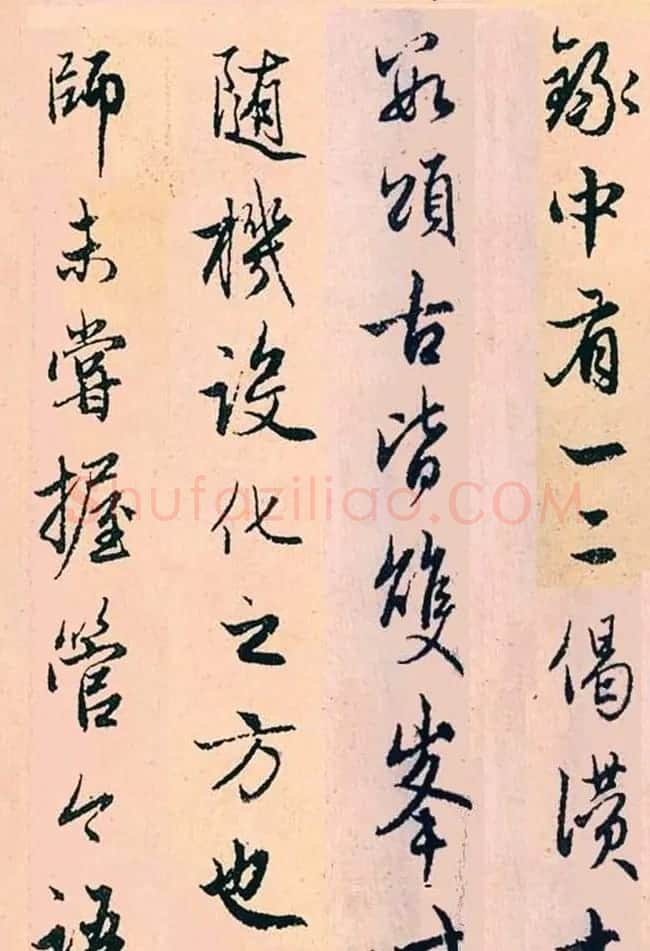 錄中有一二偈讚
頌古皆雙峯
随機設化之方也
師未嘗握管今語
Shufaziliao.COM